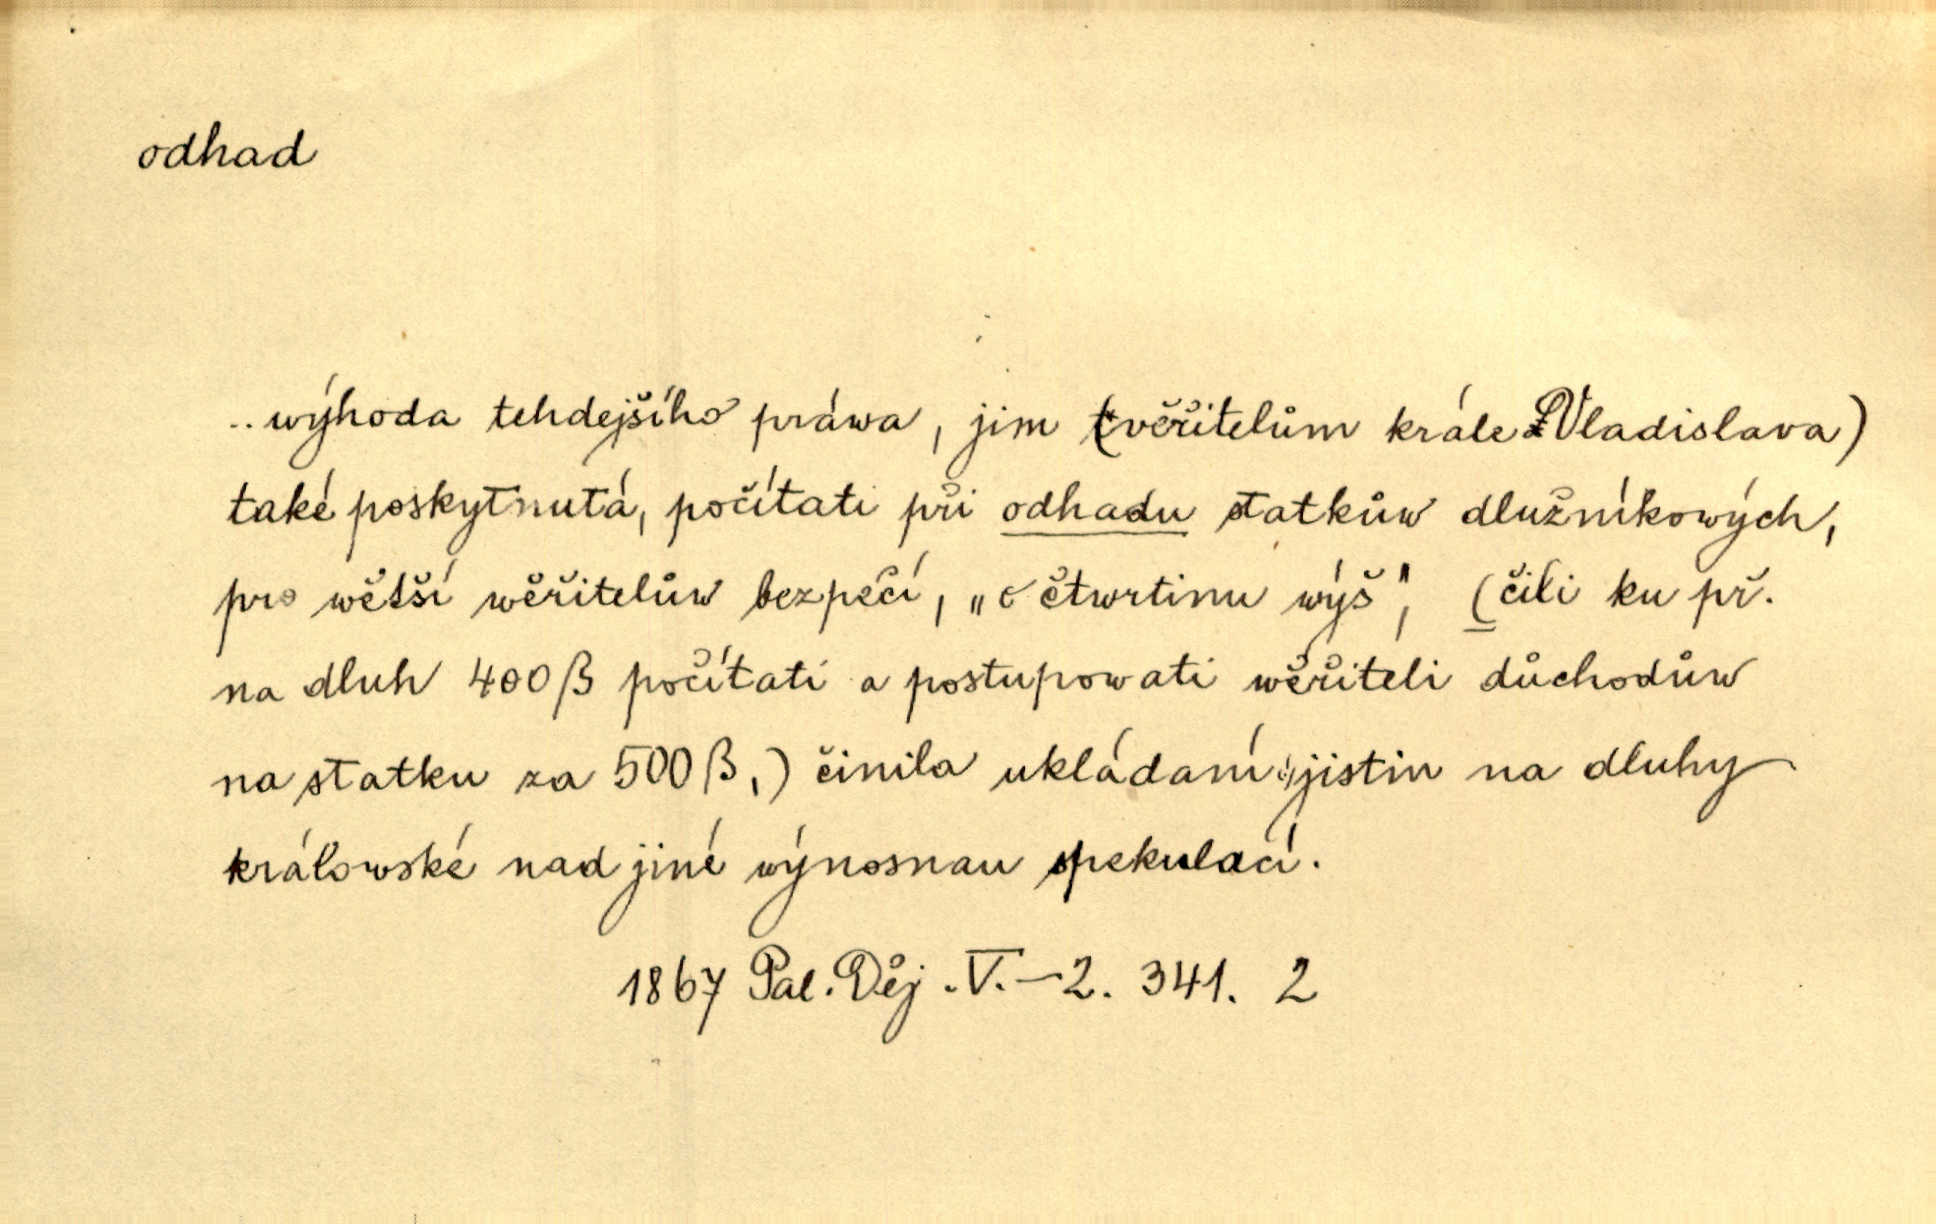 odhad
..wýhoda tehdejšího práwa, jim (věřitelům krále Vladislava)
také poskytnutá, počítati při odhadu statkůw dlužníkowých,
pro wětší wěřitelůw bezpečí, „o čtwrtinu wýš", (čili ku př.
na dluh 400 ß počítati a postupowati wěřiteli důchodůw
na statku za 500 ß,) činila ukládaní jistin na dluhy
králowské nad jiné wýnosnau spekulací.
1867 Pal. Děj. V.–2. 341. 2